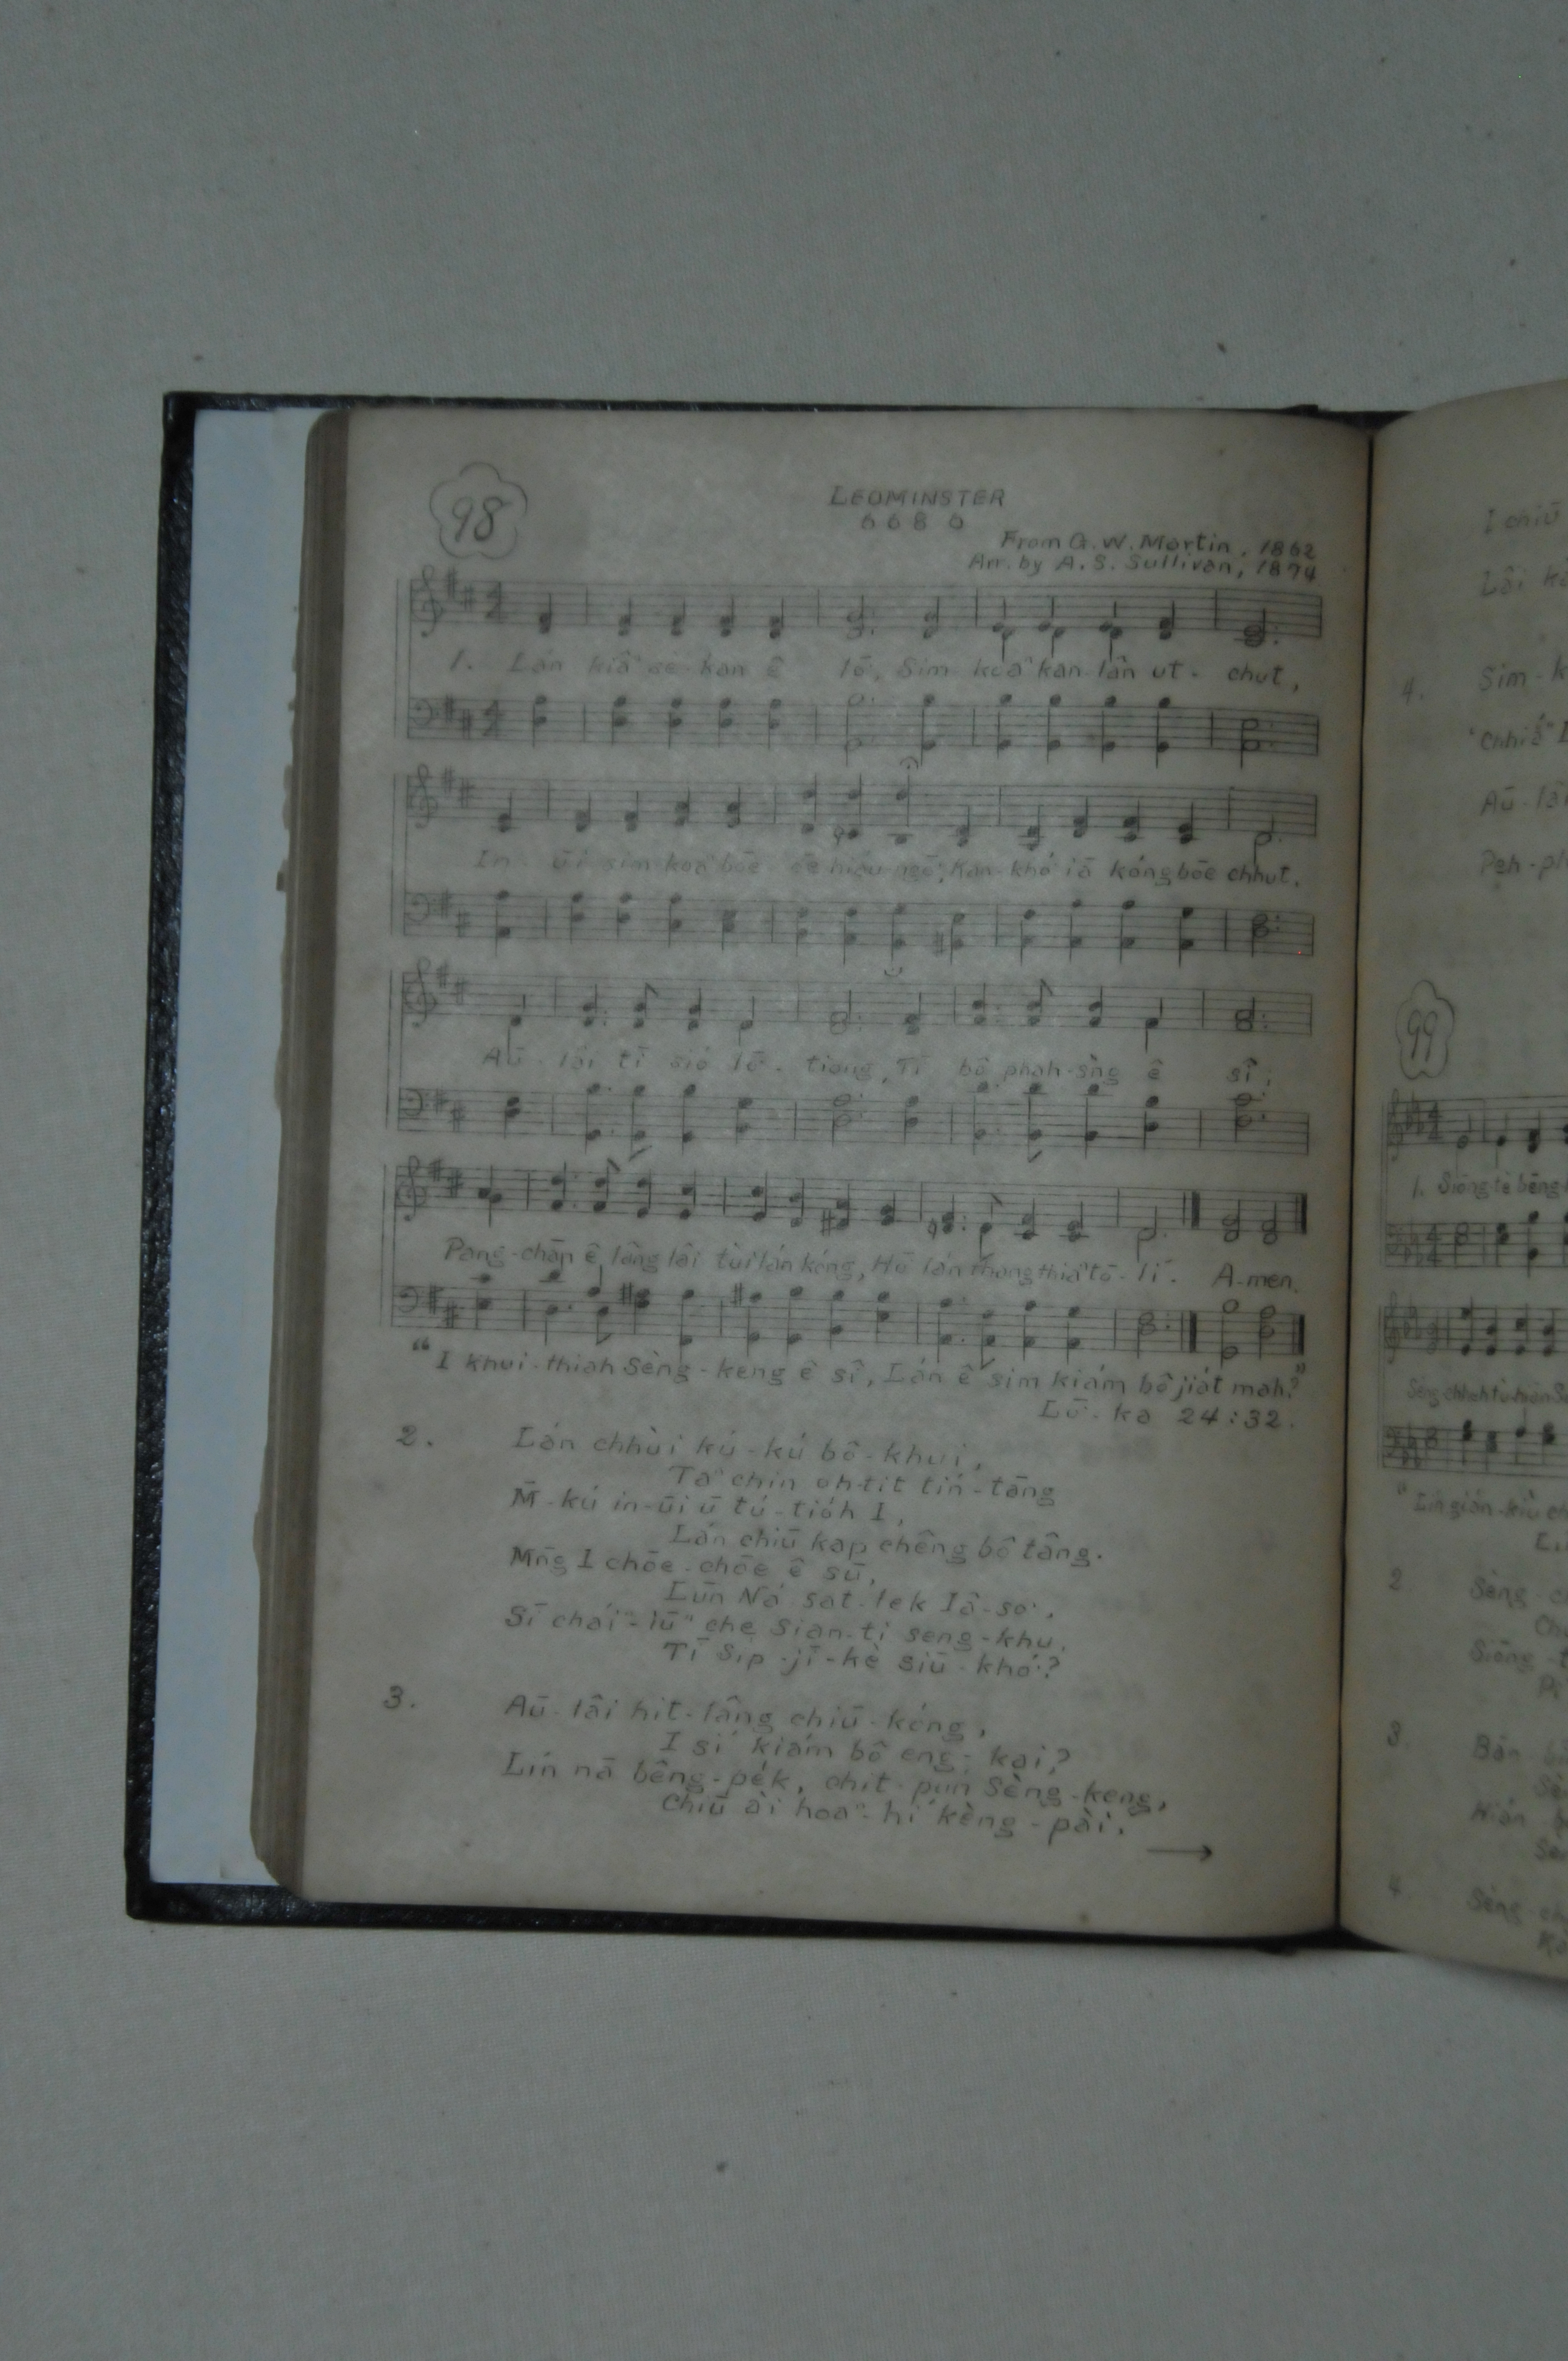 98
LEOMINSTER
6 6 8 6
From G. W. Martin, 1862
Arr. by A. S. Sullivan, 1874
1. Lán kiâⁿ kan ê lō͘, Sim koaⁿ kan-lân ut-chut,
In-ūi sim-koaⁿ bōe ōe hiáu ngō͘, Kan-khó͘ iā kóng bōe chhut.
Aū-lâi tī sió lō͘-tiong, Tī bô phah-sǹg ê sî;
Pang-chān ê lâng lâi tùi lán kóng, Hō͘ lán thong thiaⁿ tō-lí. A-men.
"I khui-thiah Sèng-keng ê sî, Lán ê sim kiám bô jia̍t mah?"
Lō͘-ka 24:32.
2. Lán chhùi kú-kú bô-khui,
Taⁿ chin oh-tit tín-tāng
M̄-kú in-ūi ū tú-tio̍h I,
Lán chiū kap chêng bô tâng.
Mn̄g I chōe-chōe ê sū,
Lūn Ná-sat-lek Iâ-so͘,
Sī cháiⁿ-iūⁿ che Sian-ti seng-khu,
Tī Si̍p-jī-kè siū-khó͘?
3. Aū-lâi hit-lâng chiū-kóng,
I sí kiám bô eng-kai?
Lín nā bêng-pe̍k, chit-pún Sèng-keng,
Chiū ài hoaⁿ-hí kèng-pài.
→
I chiū
Lâi
4. Sim-k
Aū-lâi
Peh-ph
99
1. Siōng-tè bēng-
2
Sèng
Siōng-t
3.
4
Sèng